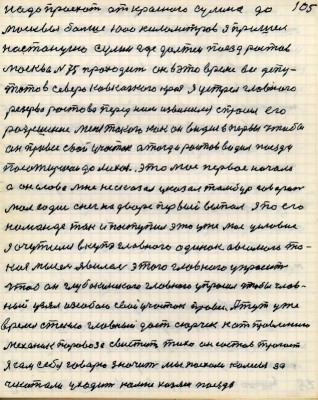 надо проехат от красного сулина до 105
москвы больше 1000 километров я пришел
на станцию сулин где должен поезд ростов
Москва N 75 проходит он в это время вез депу-
татов северо кавказского края я узрел главного
резерва ростова перед ним извинился спросил его
разрешение мне такого как он видел в первы чтобы
он провез свой участок а тогда ростов водил поезда
только до . это мое первое начало
а он слова мне не сказал указал тамбур говорит
мол садис снег на дворе первый выпал я по его
команде так и поступил это уже мое условие
я очутился в купе главного один
мысля явилась этого главного упросит
чтоб он главного упросил чтобы глав-
ный взял особою свой участок провез. А тут уже
время стекло главный дает сюрчек к отправлению
механик паровоза свистит тихо он состав трогает
я сам себе говорю значит мы поехали колеса за-
чикотали уходит нами хозяин поезда